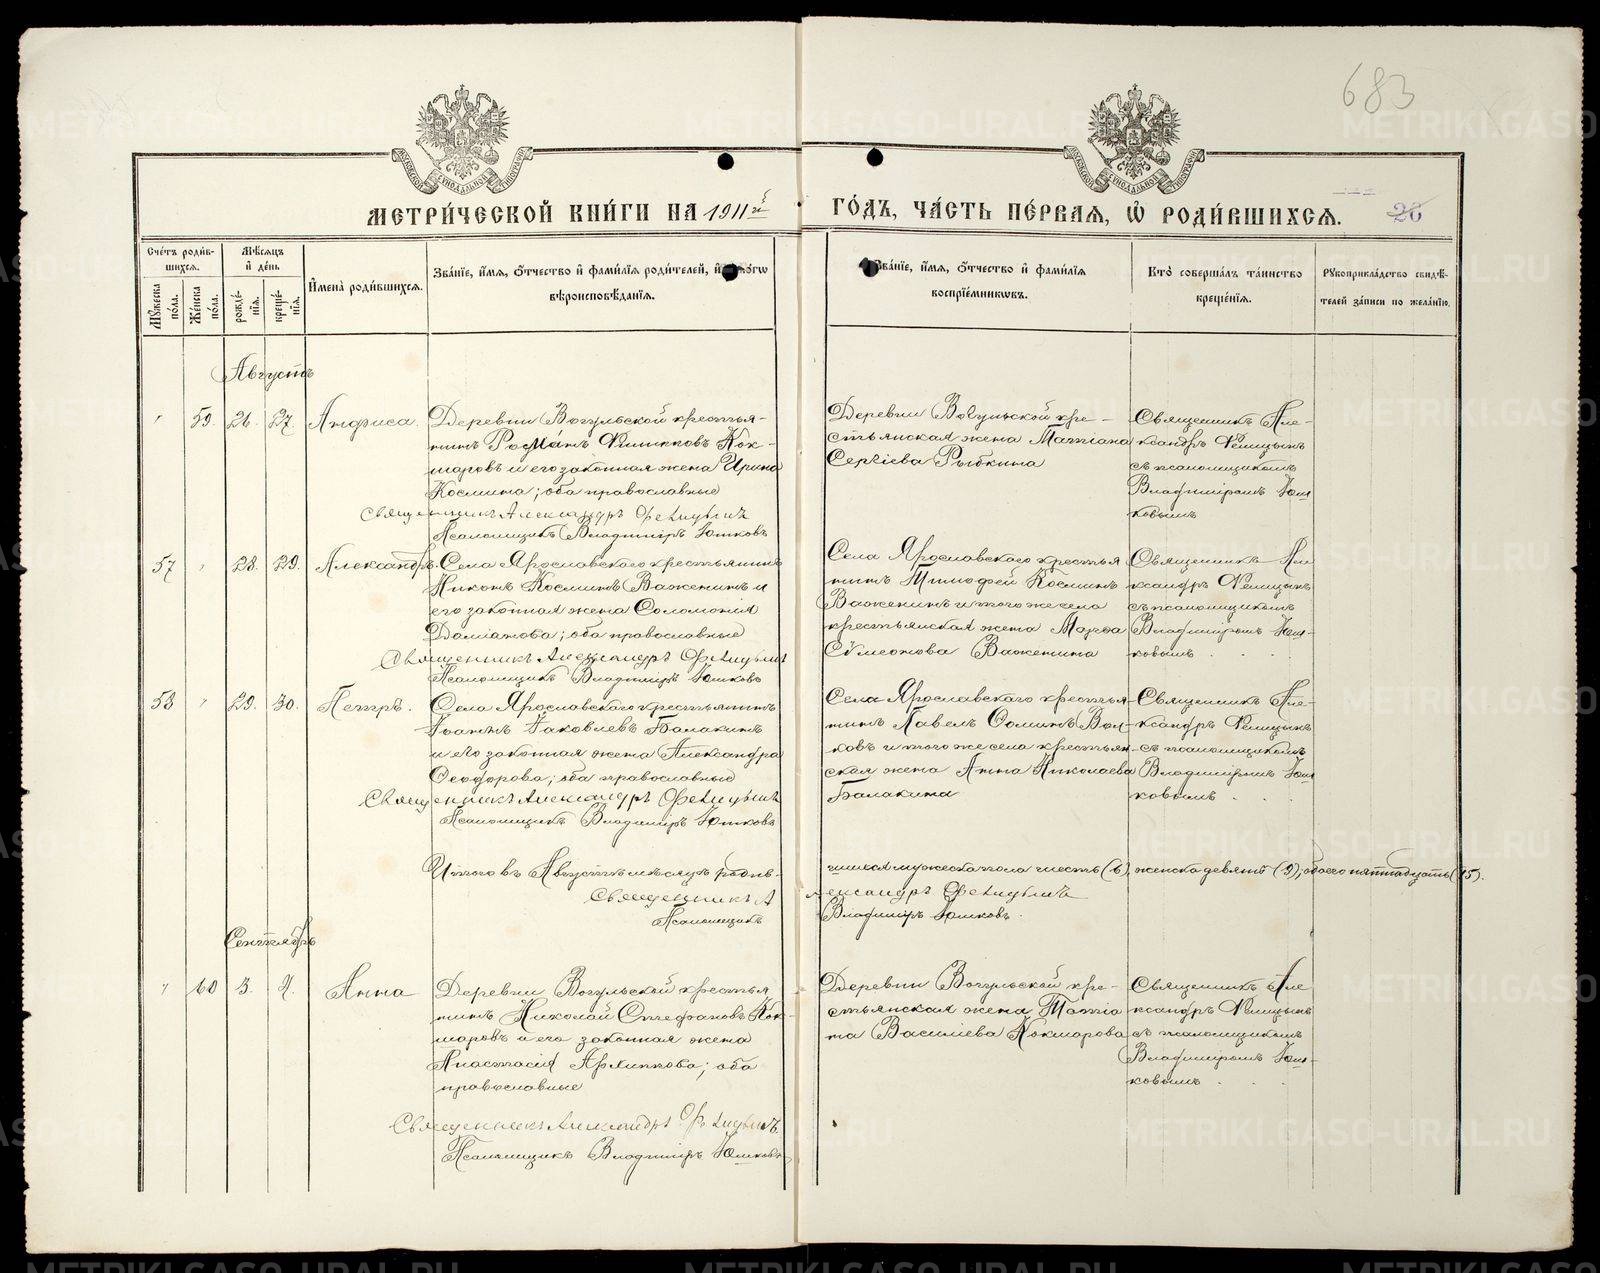 683
МЕТРИ́ЧЕСКОЙ КНИ́ГИ НА 1911й
ГО́ДЪ, ЧА́СТЬ ПЕ́РВАЯ, Ѿ РОДИ́ВШИХСЯ.
26
Сче́тъ роди́в-
шихся.
Мѣ́сяцъ
и҆ де́нь
Мꙋ́жеска по́ла.
Же́нска по́ла.
рожде́-
нїѧ.
креще́-
нїѧ.
И҆мена̀ роди́вшихся.
Зва́нїе, и҆́мя, ѻ҆́тчество и҆ фами́лїя роди́телей, и҆
вѣроисповѣ́данїя.
Зва́нїе, и҆́мя, ѻ҆́тчество и҆ фами́лїя
воспрїе́мниковъ.
Кто̀ соверша́лъ та́инство
креще́нїя.
Рꙋкоприкла́дство свидѣ́-
телей за́писи по жела́нїю.
Августъ
" 59. 26. 27. Анфиса.
Деревни Вогульской крестья-
нинъ Романъ Филипповъ Кок-
шаровъ и его законная жена Ирина
Космина; оба православные
Священникъ Александръ Фелицынъ
Псаломщикъ Владиміръ Юшковъ
Деревни Вогульской кре-
стьянская жена Татіана
Сергіева Рыбкина
Священникъ Але-
ксандръ Фелицынъ
съ псаломщикомъ
Владиміромъ Юш-
ковымъ
57 " 28. 29. Александръ.
Села Ярославского крестьянинъ
Никонъ Косминъ Важенинъ и
его законная жена Соломонія
Даміанова; оба православные
Священникъ Александръ Фелицынъ
Псаломщикъ Владиміръ Юшковъ
Села Ярославского крестья
нинъ Тимофей Косминъ
Важенинъ и того же села
крестьянская жена Марѳа
Сѵмеонова Важенина
Священникъ Але
ксандръ Фелицынъ
съ псаломщикомъ
Владиміромъ Юш-
ковымъ
58 " 29. 30. Петръ.
Села Ярославского крестьянинъ
Іоаннъ Іаковлевъ Балакинъ
и его законная жена Александра
Ѳеодорова; оба православные
Священникъ Александръ Фелицынъ
Псаломщикъ Владиміръ Юшковъ
Села Ярославского крестья-
нинъ Павелъ Ѳоминъ Вол-
ковъ и того же села крестьян-
ская жена Анна Николаева
Балакина
Священникъ Але-
ксандръ Фелицынъ
съ псаломщикомъ
Владиміромъ Юш
ковымъ
Итого въ Августѣ мѣсяцѣ роди-
вшихся мужеска пола шесть (6), женска девять (9), обоего пятнадцать (15).
Священникъ Александръ Фелицынъ
Псаломщикъ Владиміръ Юшковъ.
Сентябрь
" 60 3. 4. Анна
Деревни Вогульской крестья
нинъ Николай Стефановъ Кок-
шаровъ и его законная жена
Анастасія Архиппова; оба
православные
Священникъ Александръ Фелицынъ.
Псаломщикъ Владиміръ Юшковъ
Деревни Вогульской кре-
стьянская жена Татіа
на Василіева Кокшарова
Священникъ Але
ксандръ Фелицынъ
съ псаломщикомъ
Владиміромъ Юш-
ковымъ
METRIKI.GASO-URAL.RU